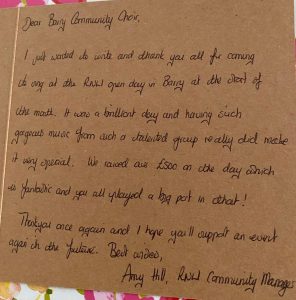 Dear Barry Community Choir,
I just wanted to write and thank you all for coming
to sing at the RNLI open day in Barry at the start of
the month. It was a brilliant day and having such
gorgeous music from such a talented group really did make
it very special. We raised over £500 on the day which
is fantastic and you all played a big part in that!
Thankyou once again and I hope you'll support an event
again in the future. Best wishes,
Amy Hill, RNLI Community Manager